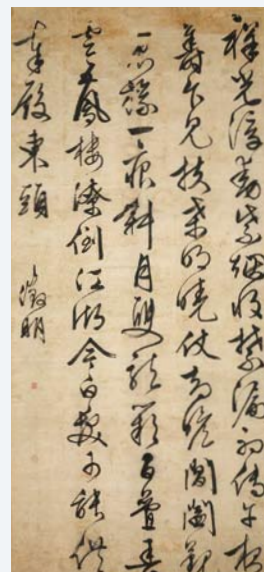 祥光浮動紫烟收禁漏初傳午
籌乍見扶桑明曉仗高瞻閶闔
宸旒一痕斜月雙龍百疊春
雲五鳳樓潦倒江湖今白髮可能供
奉殿東頭
徵明